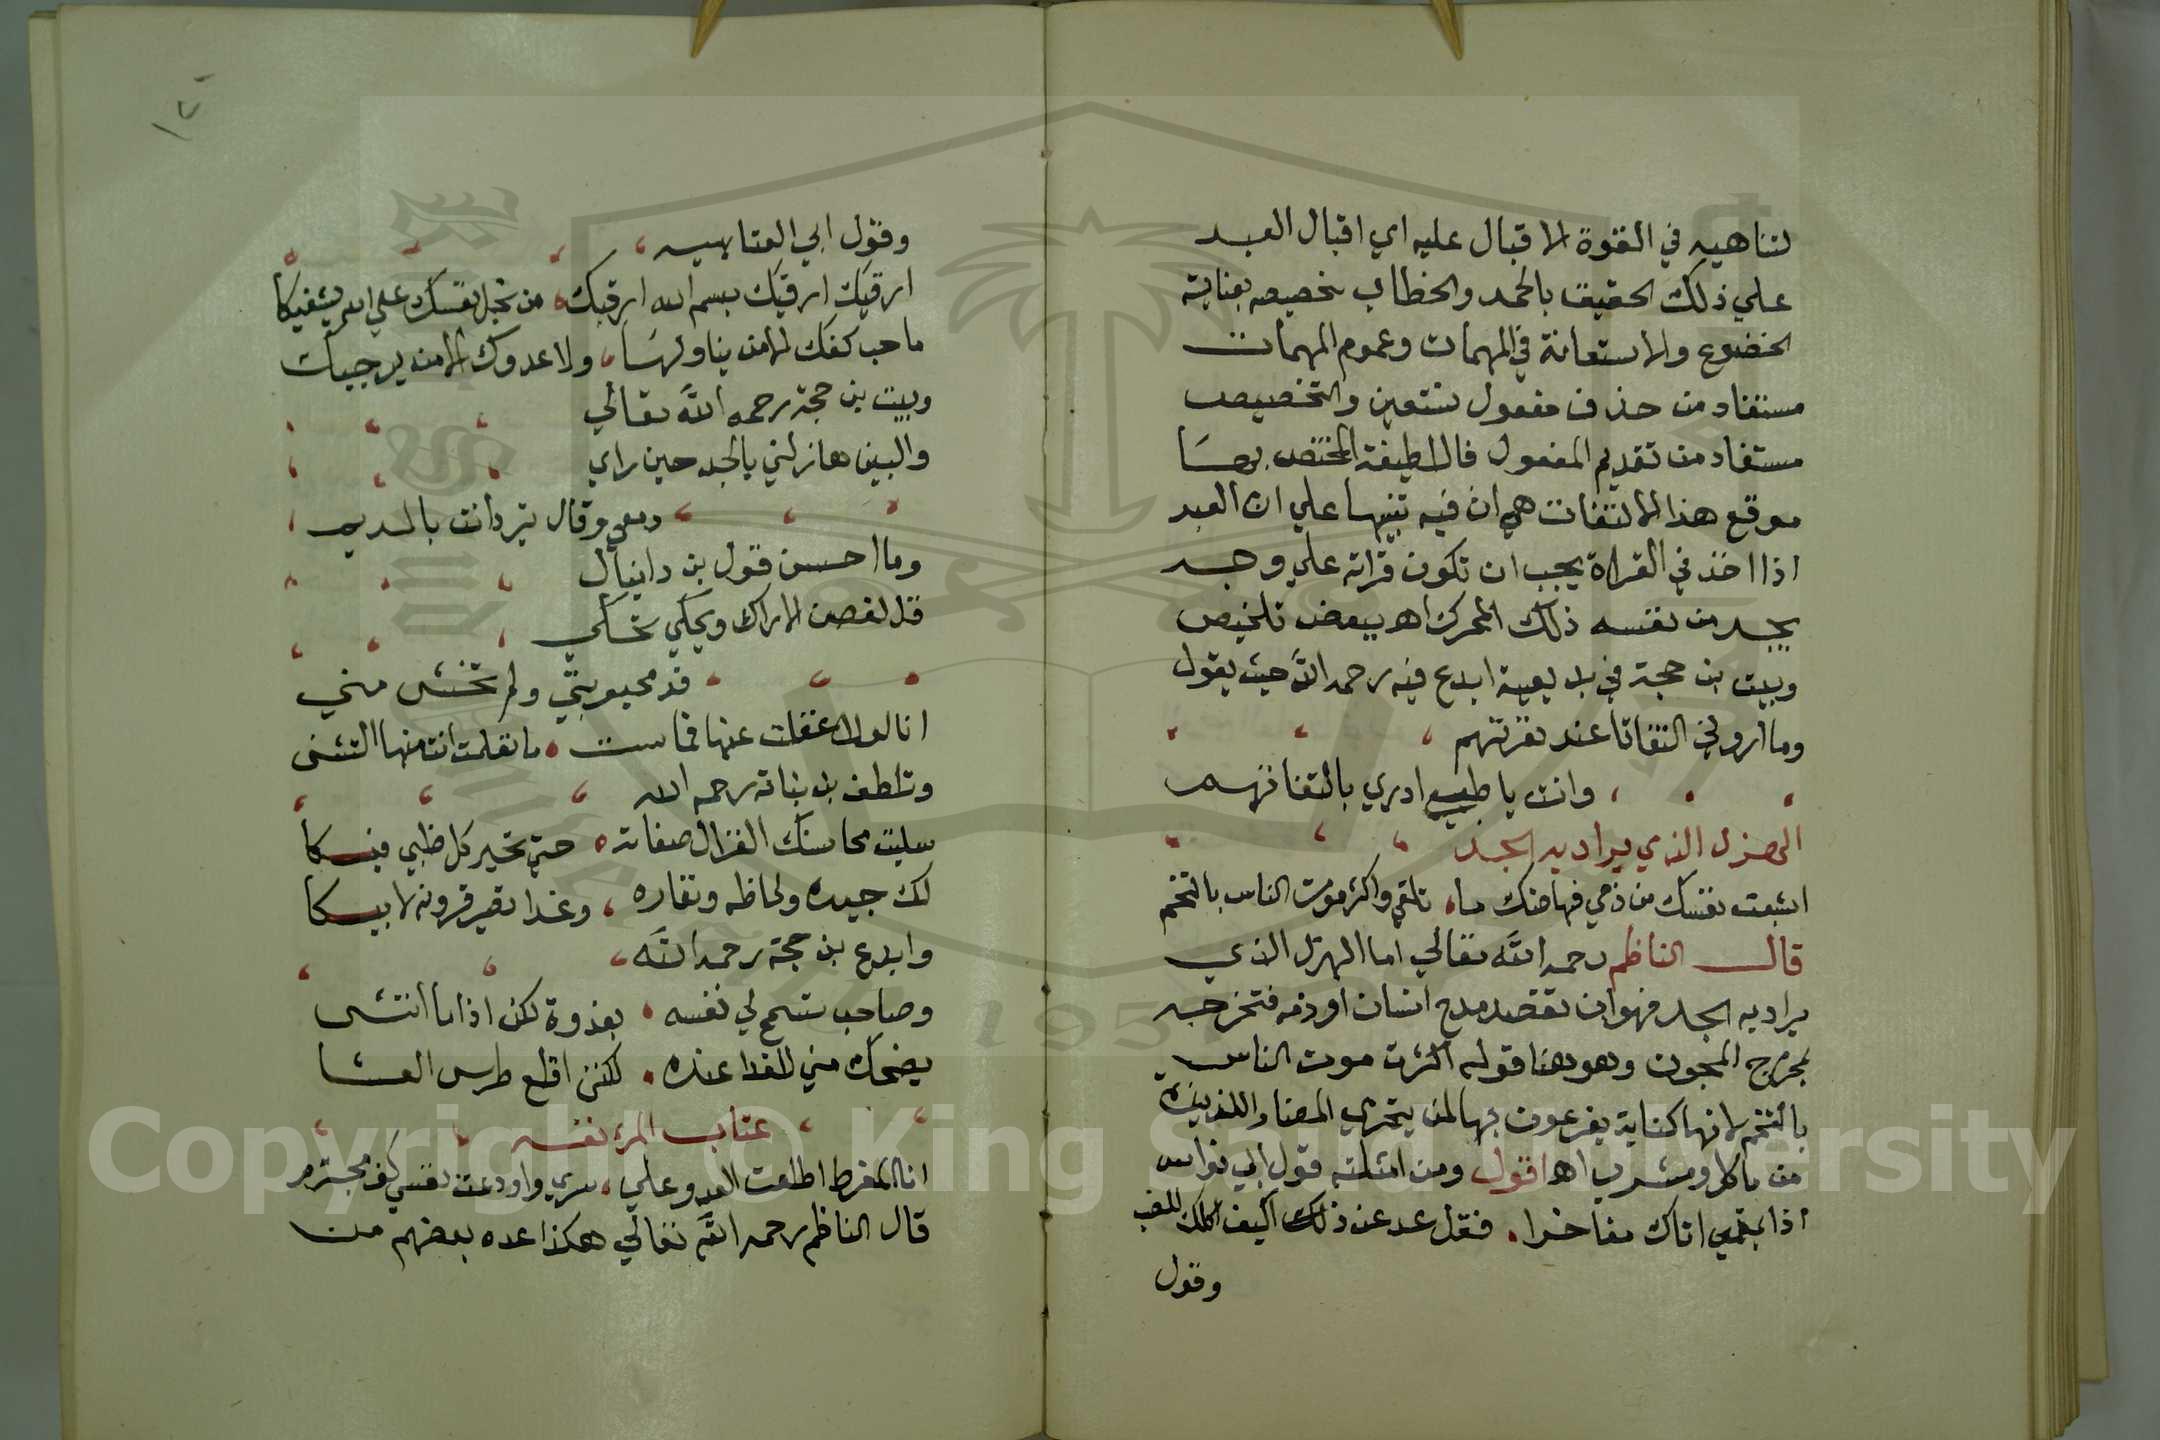 لتناهيه في القوة الاقبال عليه اي اقبال العبد
علي ذلك الحقيق بالحمد والخطاب بتخصيصه بغاية
الخضوع والاستعانة في المهمات وعموم المهمات
مستفاد من حذف مفعول نستعين والتخصيص
مستفاد من تقديم المفعول فاللطيفة المختص بها
موقع هذا الالتفات هي ان فيه تنبيها علي ان العبد
اذا اخذ في القراة يجب ان تكون قراته علي وجه
يجد من نفسه ذلك المحرك اهـ ببعض تلخيص
وبيت بن حجة في بديعيته ابدع فيه رحمه الله حيث يقول
وما اروني التفاتا عند نفرتهم
وانت يا ظبي ادري بالتفاتهم
الهزل الذي يراد به الجد
اشبعت نفسك من ذمي فهاضك ما تلقي واكثر موت الناس بالتخم
قال الناظم رحمه الله تعالي اما الهزل الذي
يراد به الجد فهو ان تقصد مدح انسان او ذمه فتخرجه
مخرج المجون وهو هنا قوله اكثرت موت الناس
بالتخم لانها كناية يفرعون بها لمن يتحري المضار اللذيذة
من ماكل ومشرب اهـ اقول ومن امثلته قول ابي نواس
اذا تميمي اتاك مفاخرا فقل عد عن ذلك اكيف اكلك للضب
وقول
وقول ابي العتاهيه
ارقيك ارقيك بسم الله ارقيك من بخل نفسك علي الله يشفيكا
ما حب كفك الا من يناولها ولا عدوك الا من يرجيك
وبيت بن حجة رحمه الله تعالي
والبين هازلني بالجد حين راي
دمعي وقال تبرد انت بالديم
وما احسن قول بن دانيال
قل لغصن الاراك ويحكي تحكي
قد محبوبتي ولم تخش مني
انا لولا غفلت عنها فماست ما تعلمت انت منها التثني
وتلطف بن نباته رحمه الله
سلبت محاسنك الغزال صفاته حتي تحير كل ظبي فيكا
لك جيده ولحاظه ونفاره وغدا تصير قرونه لابيكا
وابدع بن حجة رحمه الله
وصاحب تسمح لي نفسه بغذوة لكن اذا ما انتشي
يضحك مني للغدا عنده لكنني اقلع ضرس العشا
عتاب المرء نفسه
انا المفرط اطلعت العدو علي سري واودعت نفسي كف مجترم
قال الناظم رحمه الله تعالي هكذا عده بعضهم من